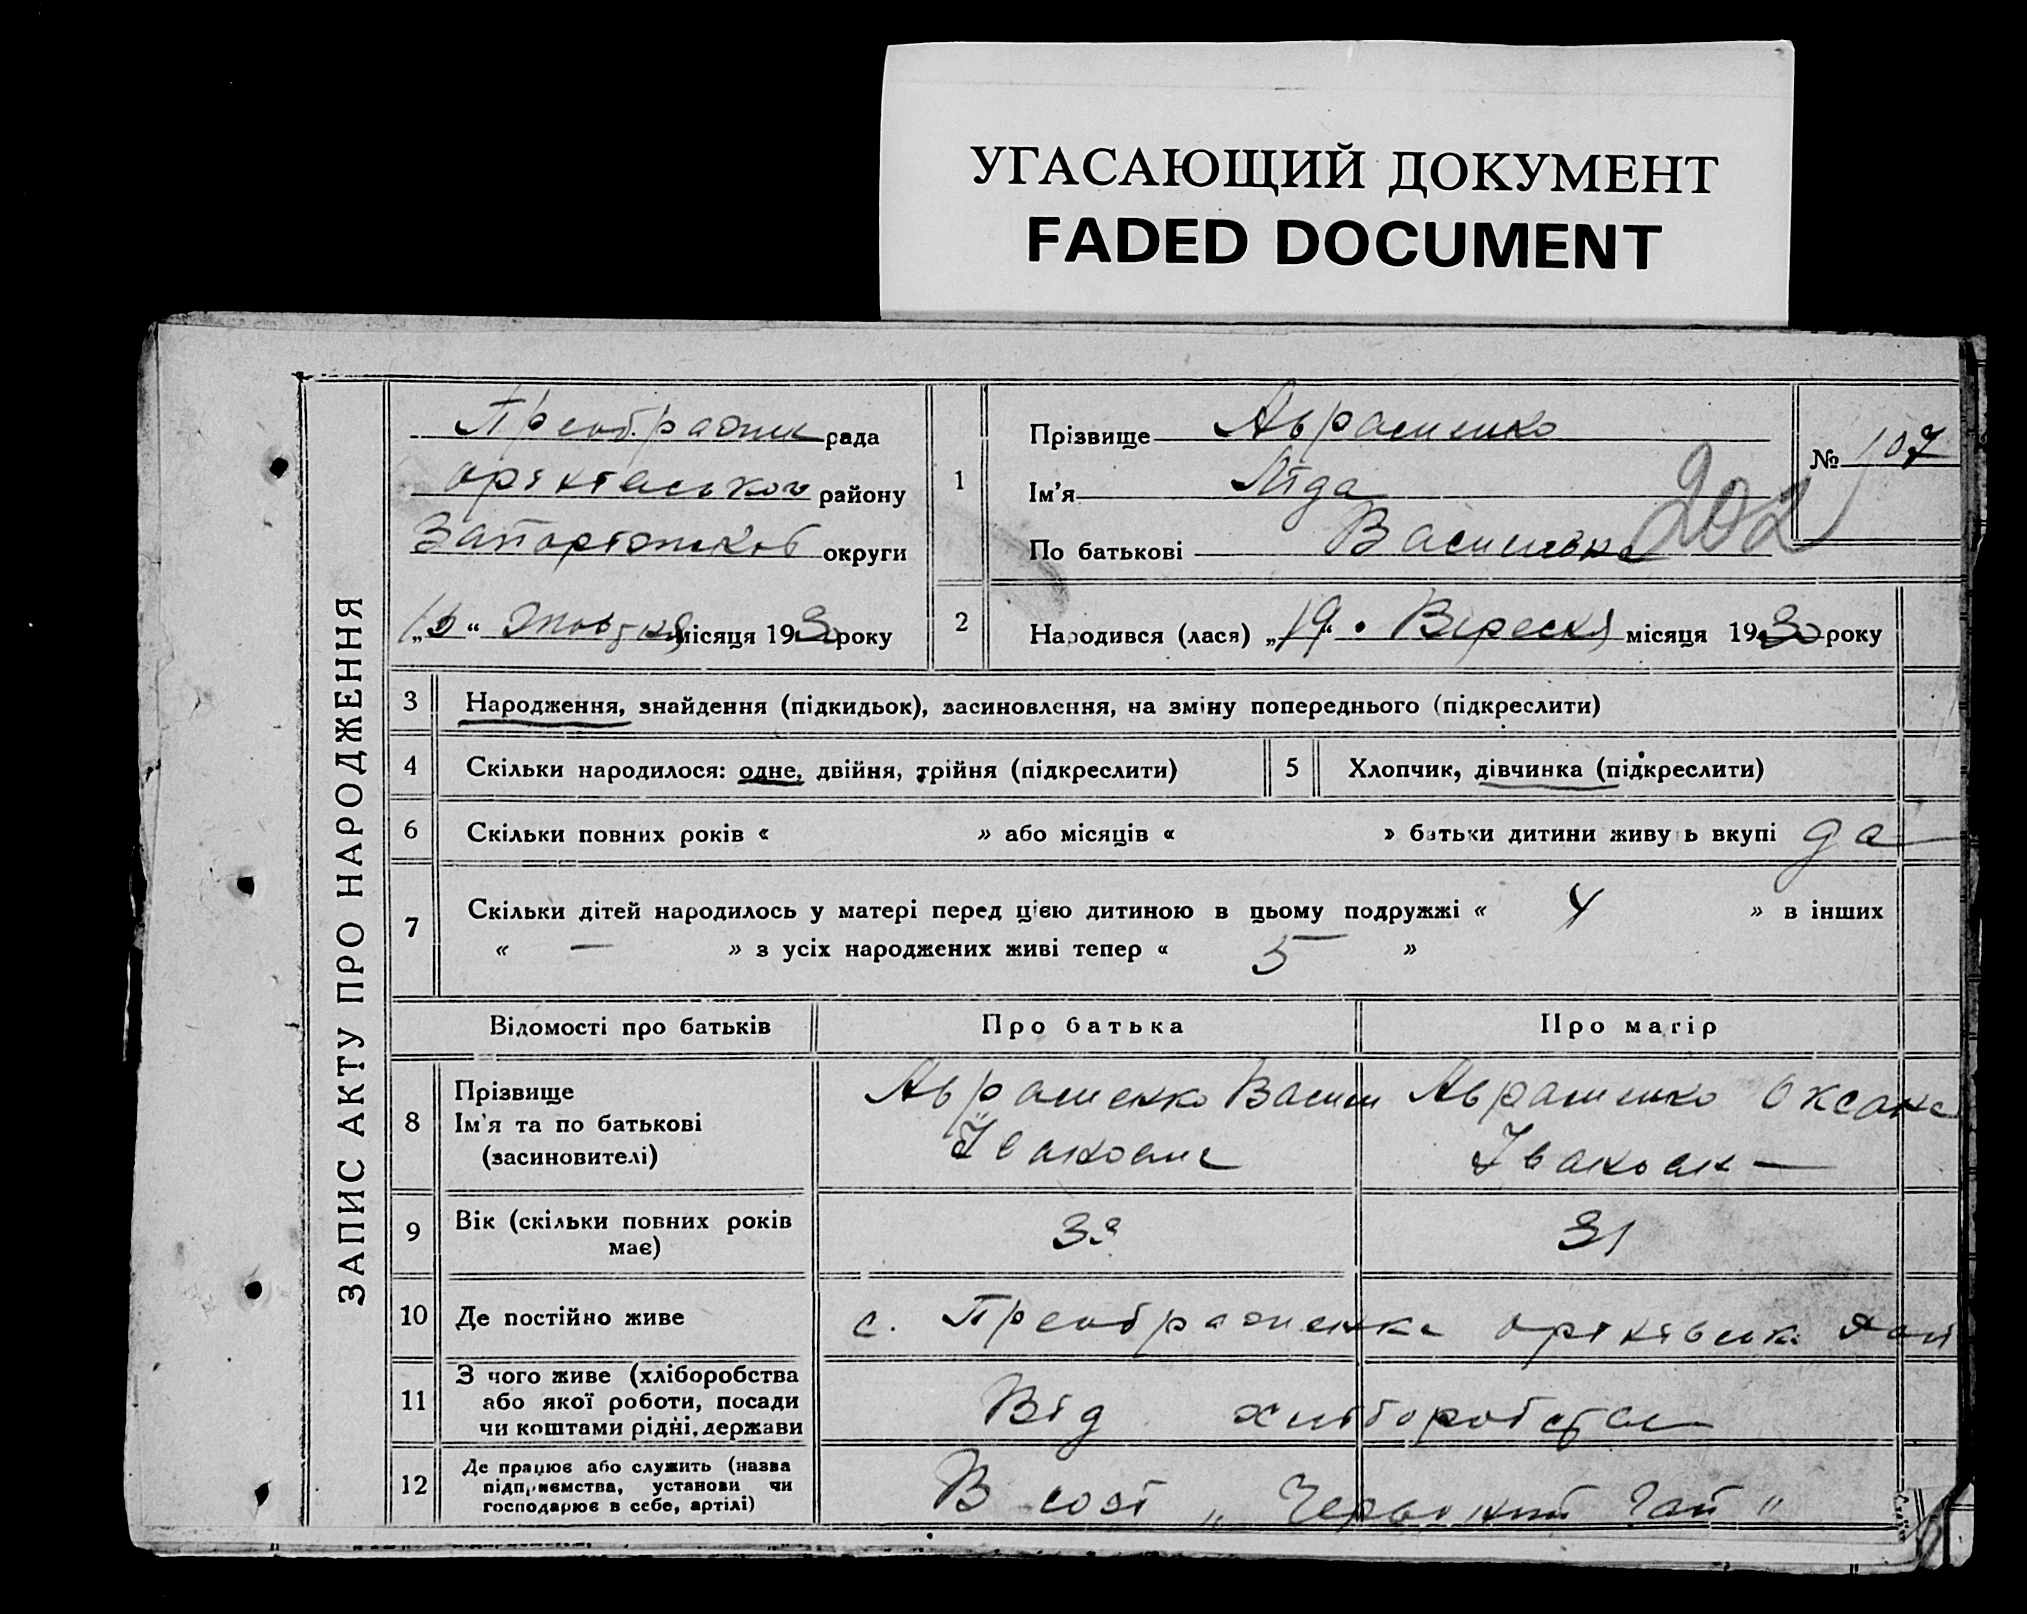 УГАСАЮЩИЙ ДОКУМЕНТ
FADED DOCUMENT
ЗАПИС АКТУ ПРО НАРОДЖЕННЯ
Преображен рада
району
округи
місяця 1930 року
1
Прізвище Авраменко
Ім'я Ліда
По батькові
№ 107
202
2
Народився (лася) „19“ Вересня місяця 1930 року
3 Народження, знайдення (підкидьок), засиновлення, на зміну попереднього (підкреслити)
4 Скільки народилося: одне, двійня, трійня (підкреслити)
5 Хлопчик, дівчинка (підкреслити)
6 Скільки повних років « » або місяців « » батьки дитини живуть вкупі да
7 Скільки дітей народилось у матері перед цією дитиною в цьому подружжі « 4 » в інших
« — » з усіх народжених живі тепер « 5 »
Відомості про батьків Про батька Про матір
8 Прізвище
Ім'я та по батькові
(засиновителі)
Авраменко Васил
Авраменко Оксана
9 Вік (скільки повних років
має)
33 31
10 Де постійно живе с. Преображенка
11 З чого живе (хліборобства
або якої роботи, посади
чи коштами рідні, держави
Від хліборобства
12 Де працює або служить (назва
підприємства, установи чи
господарює в себе, артілі)
В созі „Червоний Гай"